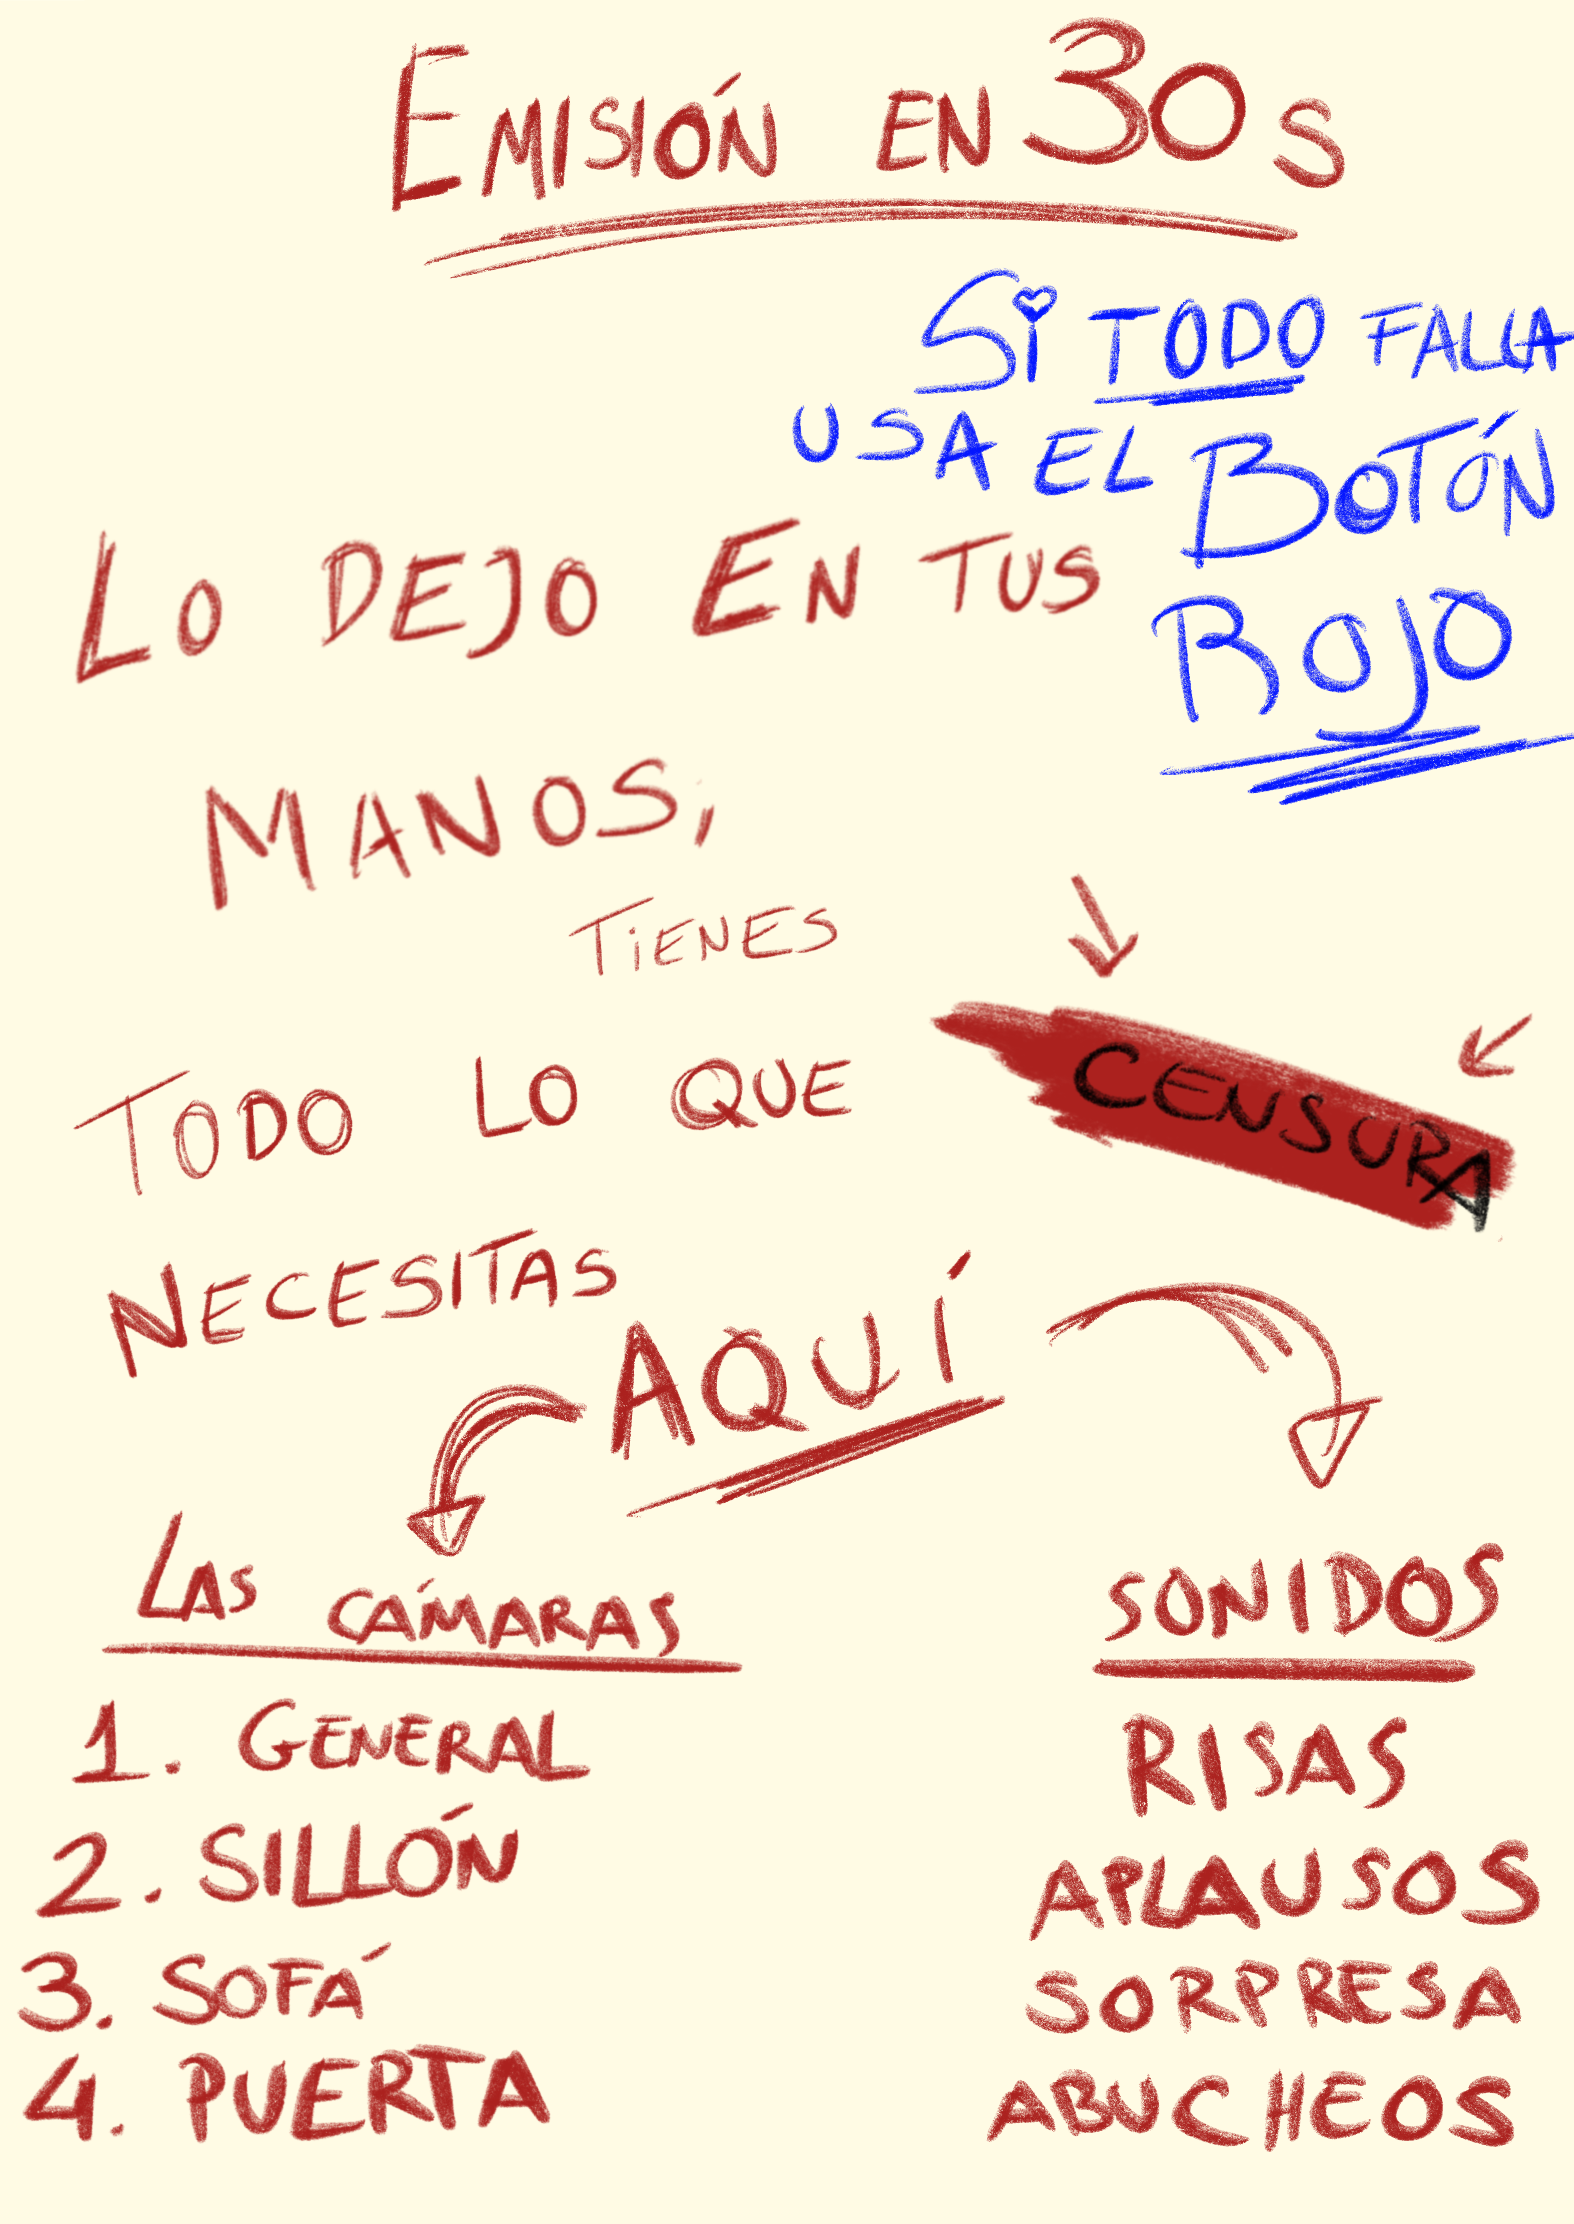 EMISIÓN EN 30 s
Si TODO FALLA
USA EL BOTÓN
ROJO
LO DEJO EN TUS
MANOS,
TiENES
TODO LO QUE
CENSURA
NECESITAS
AQUÍ
LAS CÁMARAS
1. GENERAL
2. SILLÓN
3. SOFÁ
4. PUERTA
SONIDOS
RISAS
APLAUSOS
SORPRESA
ABUCHEOS